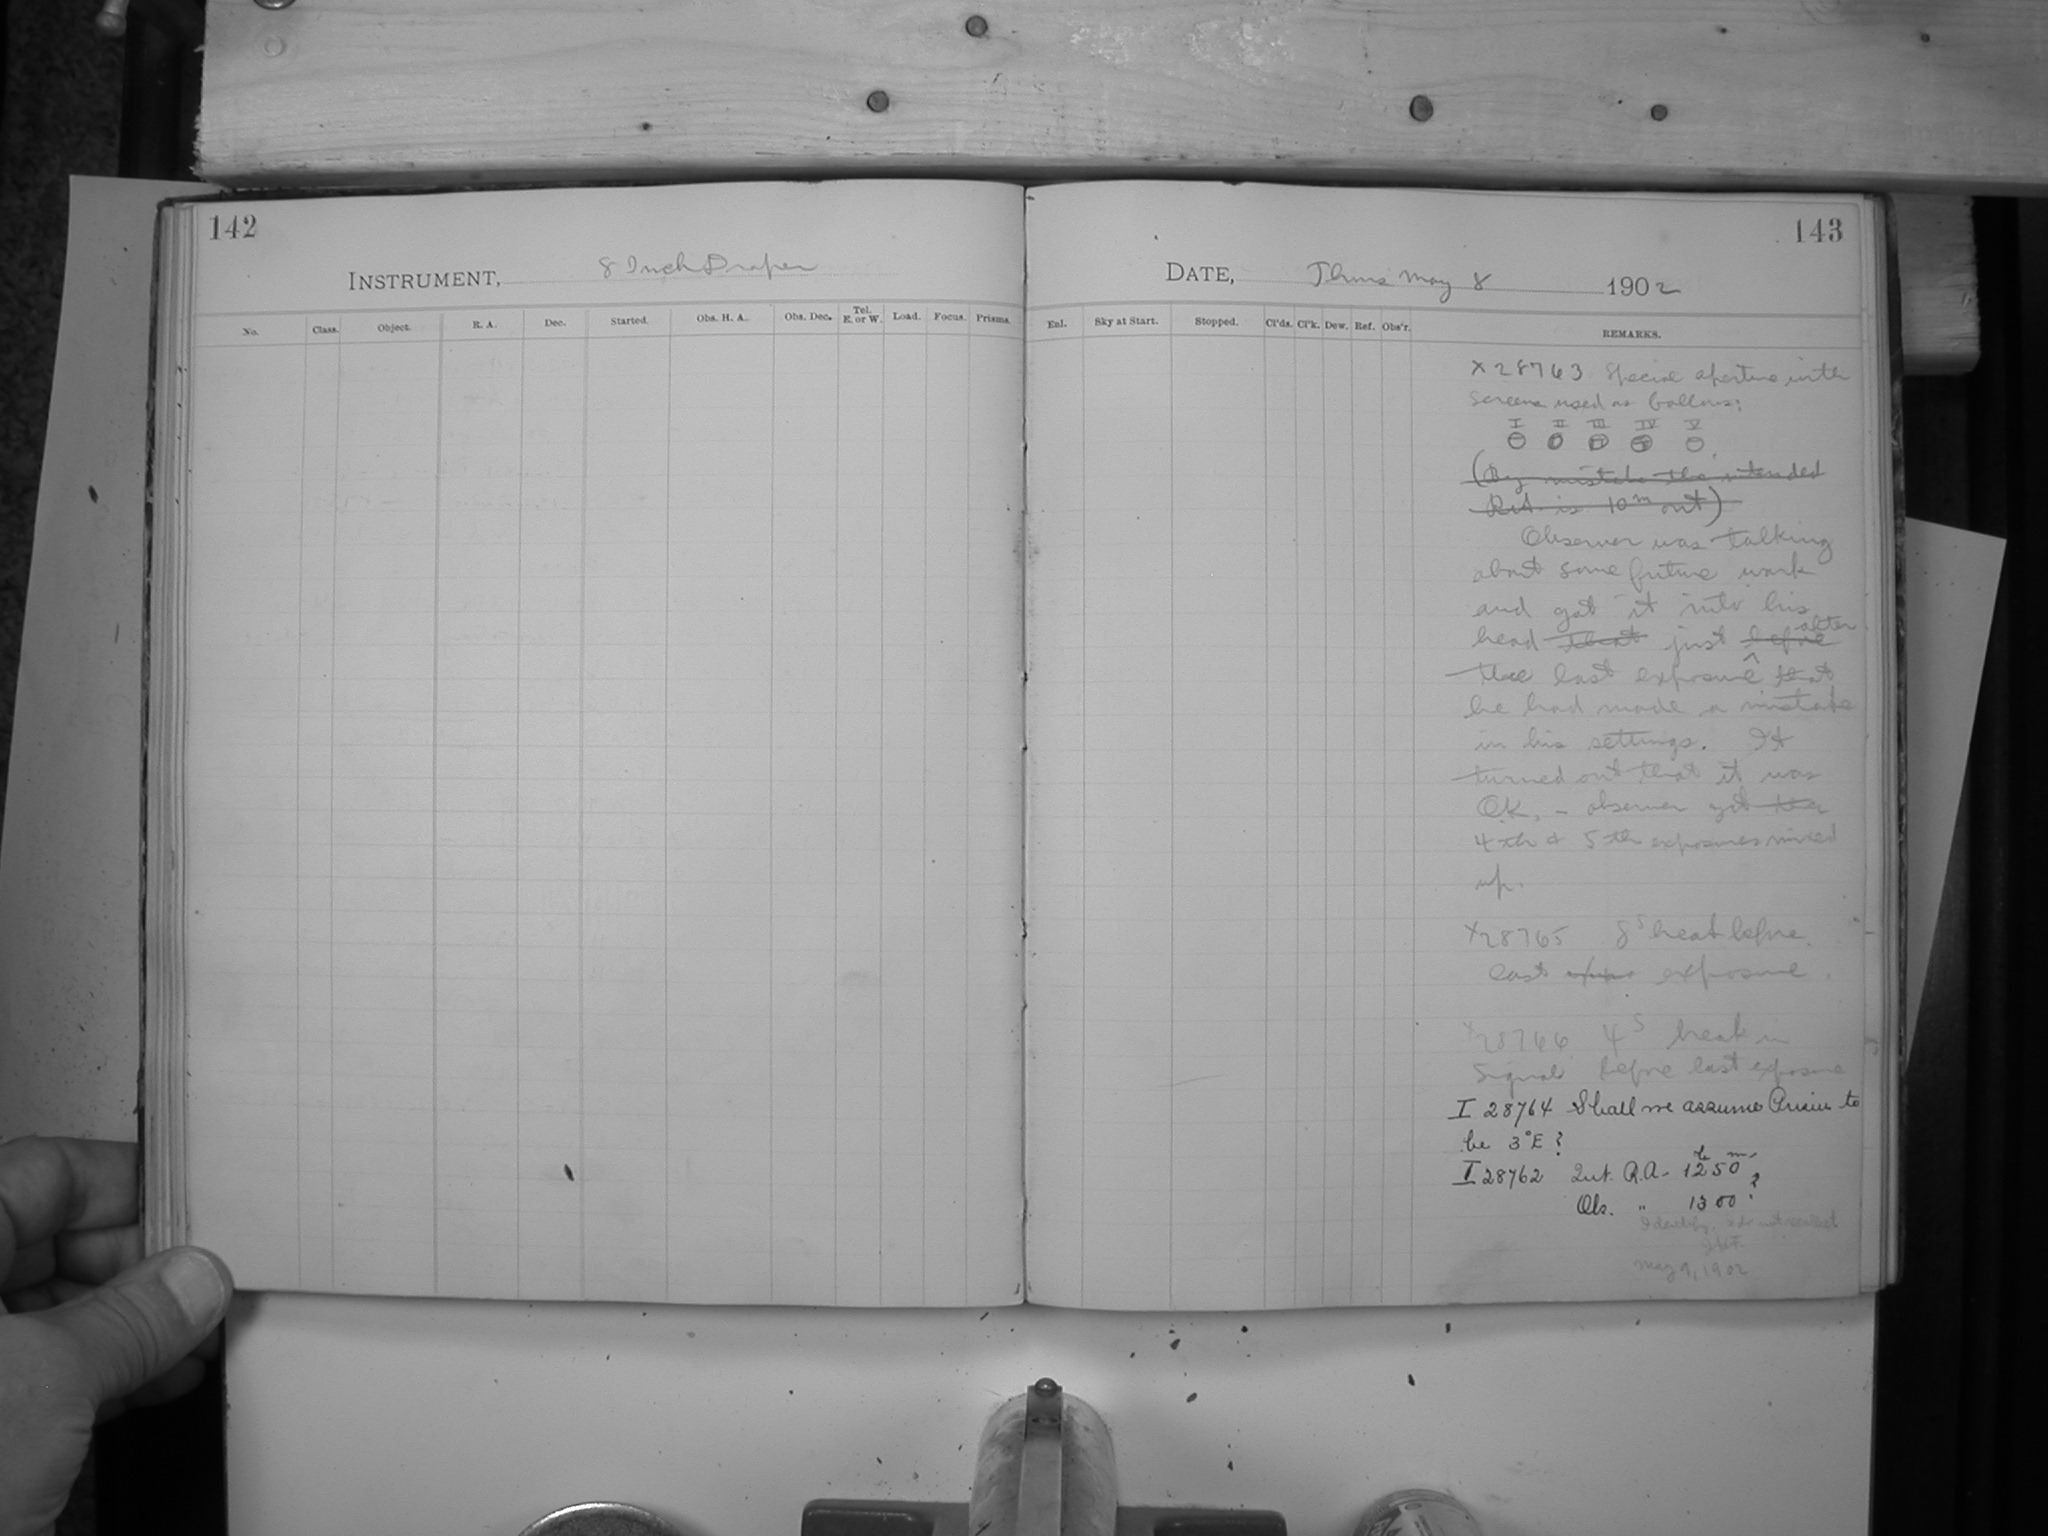 142
143
INSTRUMENT, 8 Inch Draper
DATE, Thurs May 8 1902
No. Class. Object. R. A. Dec. Started. Obs. H. A. Obs. Dec. Tel. E. or W. Load. Focus. Prisms.
Enl. Sky at Start. Stopped. Cl'ds. Cl'k. Dew. Ref. Obs'r. REMARKS.
X 28763 Special aperture with
screens used as follows:
I II III IV V
(By mistake the intended
R.A. is 10m out)
Observer was talking
about some future work
and got it into his
head that just before after
the last exposure that
he had made a mistake
in his settings. It
turned out that it was
O.K. - observer got the
4th & 5th exposures mixed
up.
X 28765 8s break before
last exposure.
X 28766 4s break in
signal before last exposure
I 28764 Shall we assume Prism to
be 3°E?
I 28762 Int. R.A. 12h 50m
Obs. " 13 00 ?
May 9, 1902